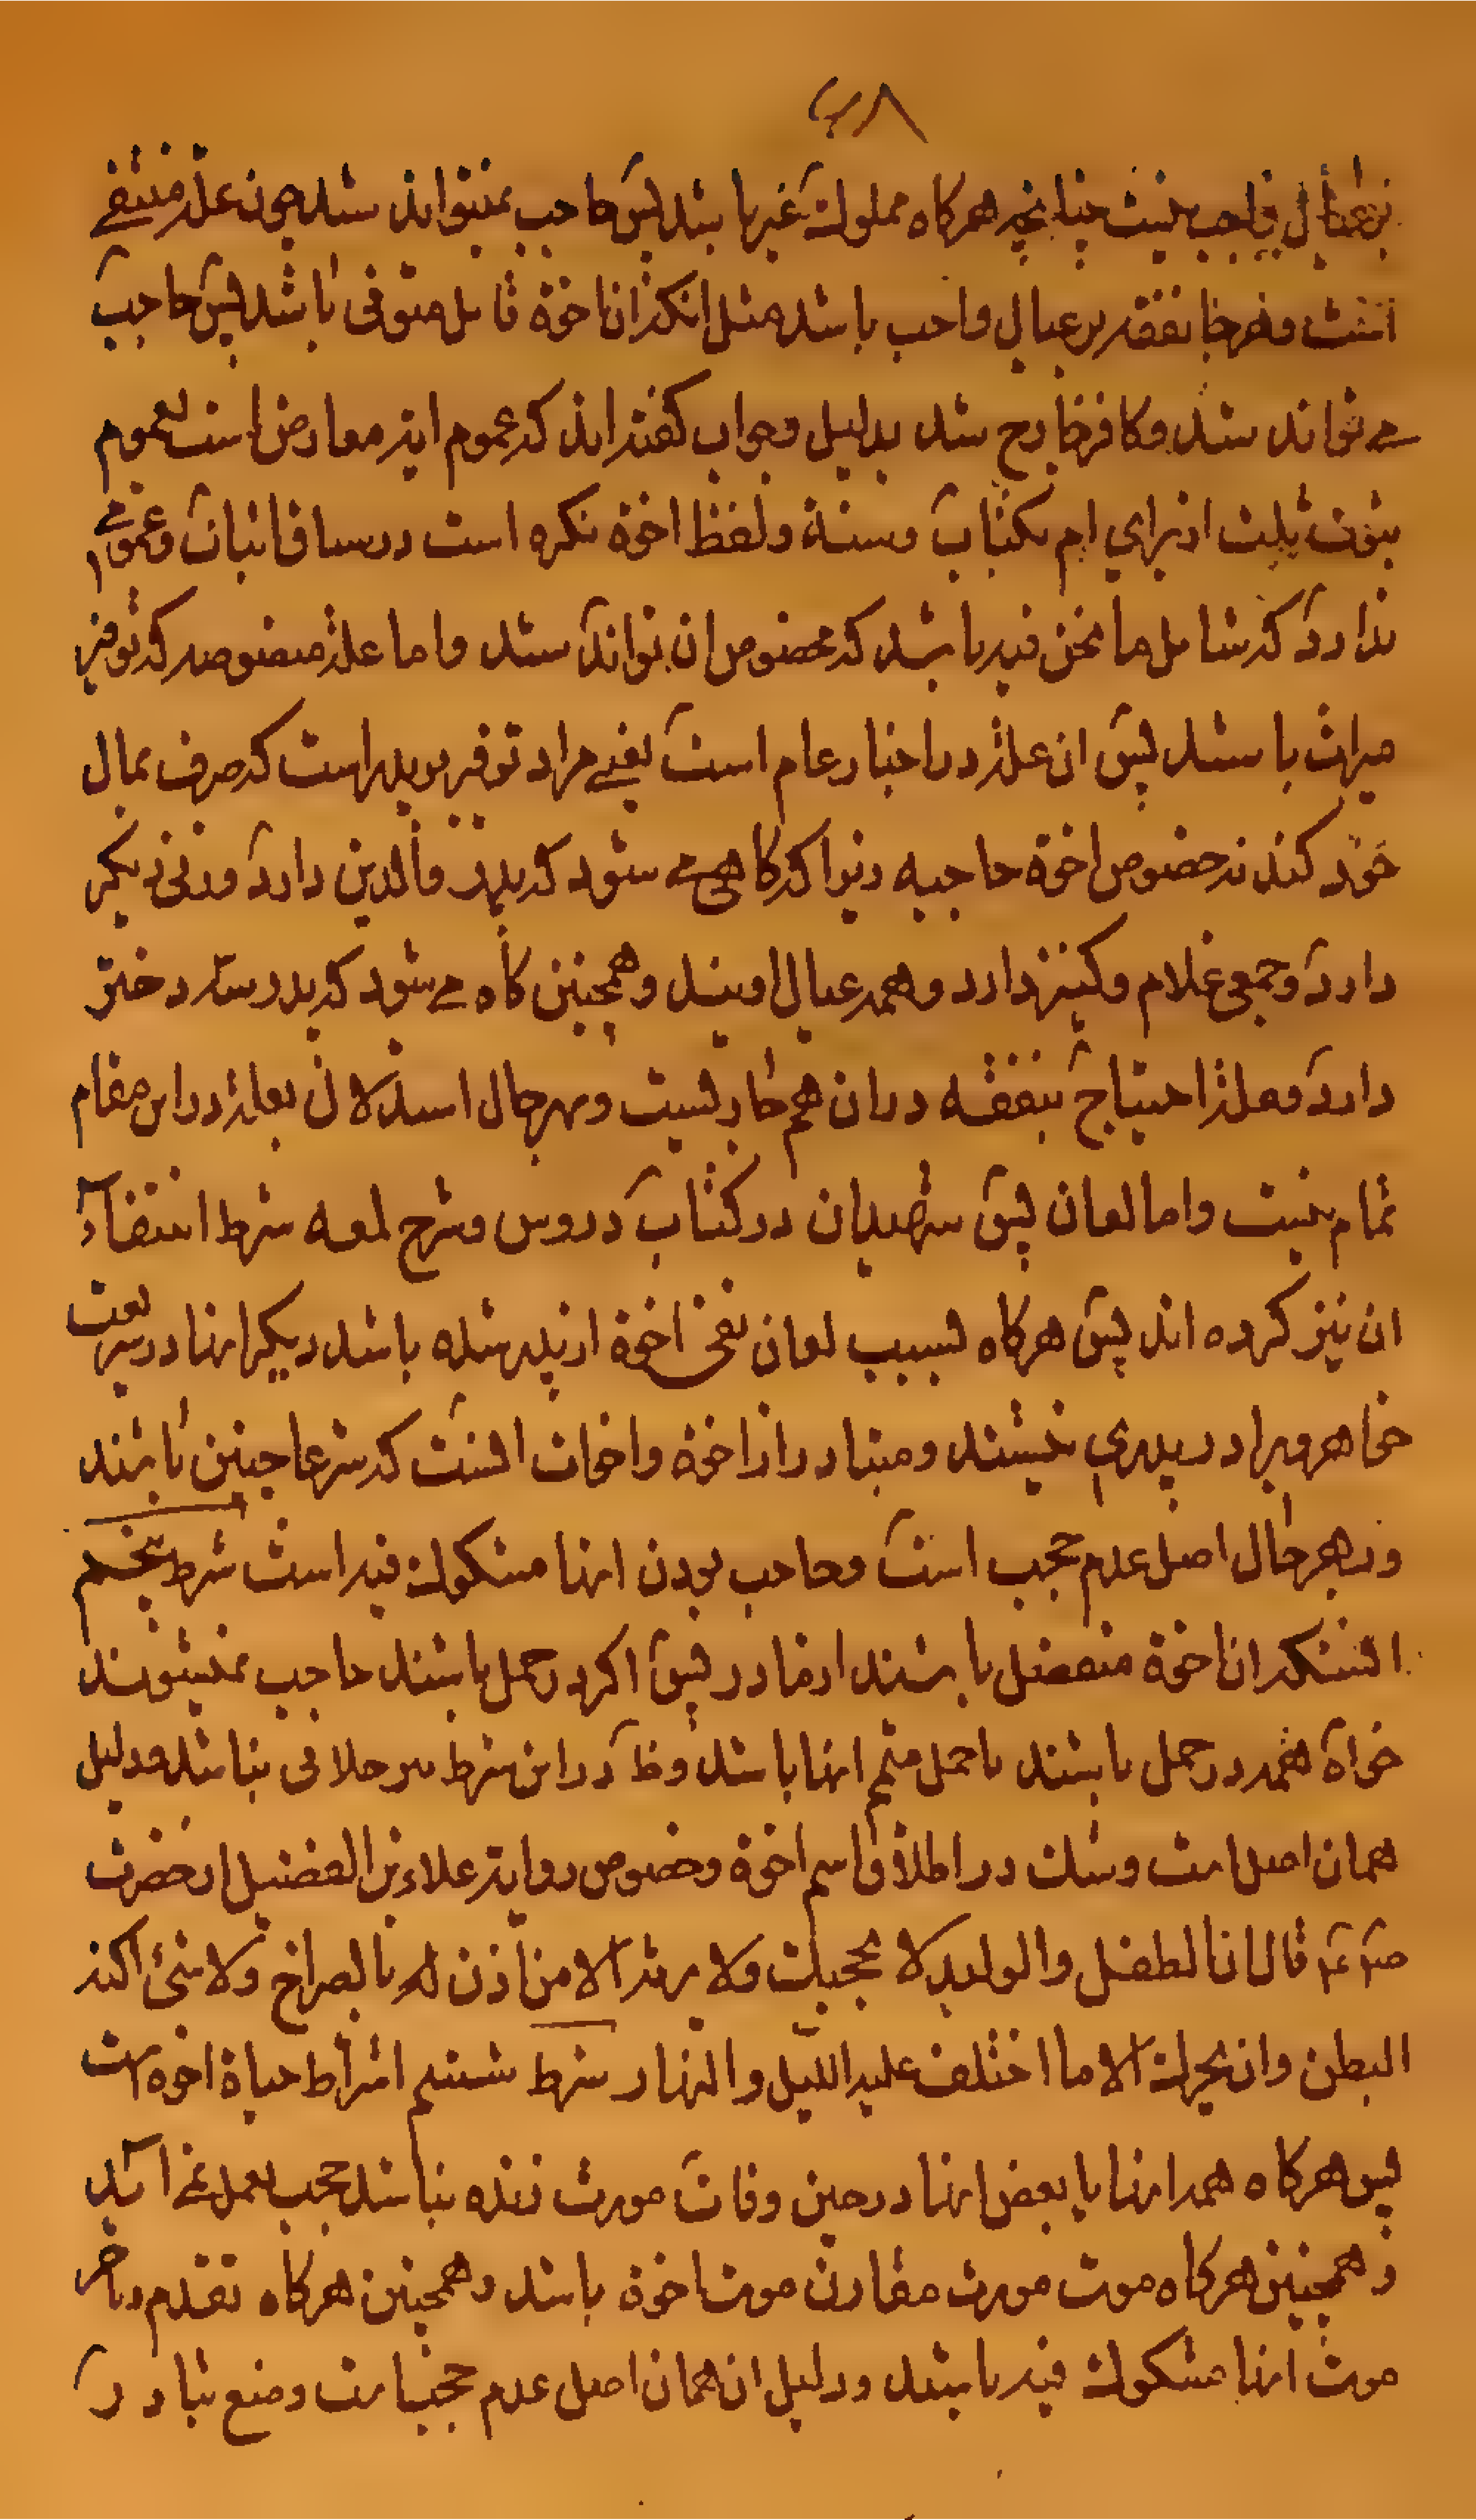 ۴۸
بر عیال واجب نیست چنانچه هرکاه مملوک غیر باشد پس حاجب نمیتواند شد چون علة منتفی
است و هرجا نفقه بر عیال واجب باشد مثل انکه ان اخوة قاتل متوفی باشد پس حاجب
می تواند شد و کافر خارج شد بدلیل و جواب کفته اند که عموم ایه معارض است بعموم
ثبوت ثلث از برای ام بکتاب و سنة و لفظ اخوة نکره است در سیاق اثبات و عمومی
ندارد که شامل ما نحن فیه باشد که مخصوص ان تواند شد و اما علة منصوصه که توفیر
میراث باشد پس ان علة در اخبار عام است یعنی مراد توفیر بر پدر است که صرف بمال
خود کند نه خصوص اخوة حاجبه زیرا که کاهی می شود که پدر والدین دارد و زنی دیکر
دارد و جمعی غلام و کنیز دارد و همه عیال اویند و همچنین کاه می شود که پدر سه دختر
دارد و علة احتیاج بنفقه در ان هم جار نیست و بهر حال استدلال بعلة در این مقام
تمام نیست و اما لعان پس شهیدان در کتاب دروس و شرح لمعه شرط انتفآء
ان نیز کرده اند پس هرکاه بسبب لعان نفی اخوة از پدر شده باشد دیکر انها در شریعت
خواهر و برادر پدری نیستند و متبادر از اخوة و اخوات انست که شرعا چنین باشند
و بهر حال اصل عدم حجب است و حاجب بودن انها مشکوک فیه است شرط پنجم
انستکه ان اخوة منفصل باشند از مادر پس اکر در حمل باشند حاجب نمیشوند
خواه همه در حمل باشند یا حمل متمم انها باشد و ظ آ در این شرط نیز خلافی نباشد و دلیل
همان اصل است و شک در اطلاق اسم اخوة و خصوص روایة علاء بن الفضیل از حضرت
ص ع قال ان الطفل والولید لا یحجبک ولا یرث الا من اذن له بالصراخ ولا شئ اکنه
البطن وان تحرک الا ما اختلف علیه اللیل والنهار شرط ششم اشراط حیاة اخوه است
پس هرکاه همه انها یا بعض انها در حین وفات مورث زنده نباشند حجب بعمل نمی اید
و همچنین هرکاه موت مورث مقارن موت اخوة باشد و همچنین هرکاه تقدم و تاخر
موت انها مشکوک فیه باشد و دلیل ان همان اصل عدم حجب است و منع تبادر